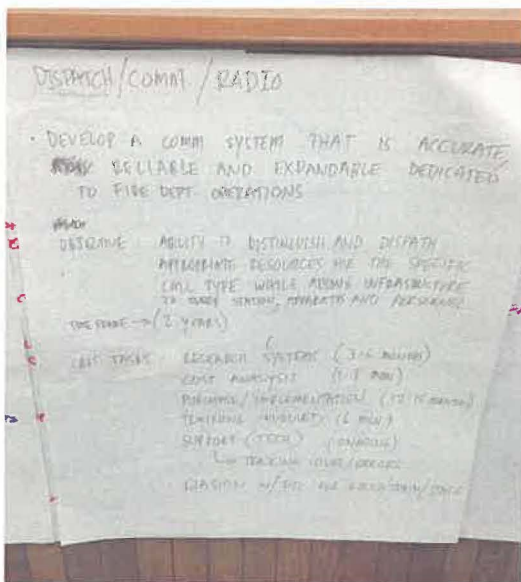 DISPATCH/COMM/RADIO
· DEVELOP A COMM SYSTEM THAT IS ACCURATE,
RELIABLE AND EXPANDABLE DEDICATED
TO FIRE DEPT OPERATIONS
OBJECTIVE: ABILITY TO DISTINGUISH AND DISPATH
APPROPRIATE RESOURCES FOR THE SPECIFIC
CALL TYPE WHILE ADDING INFRASTRUCTURE
TO EVERY STATION, APPARATUS AND PERSONNEL
TIME FRAME → (2 YEARS)
TASKS: RESEARCH SYSTEMS (3-6 MONTHS)
COST ANALYSIS
PURCHASE/IMPLEMENTATION (12-15 MONTHS)
TRAINING (6 MON)
SUPPORT (TECH) (ONGOING)
TRACKING ISSUES/ERRORS
LIASION W/ FOR